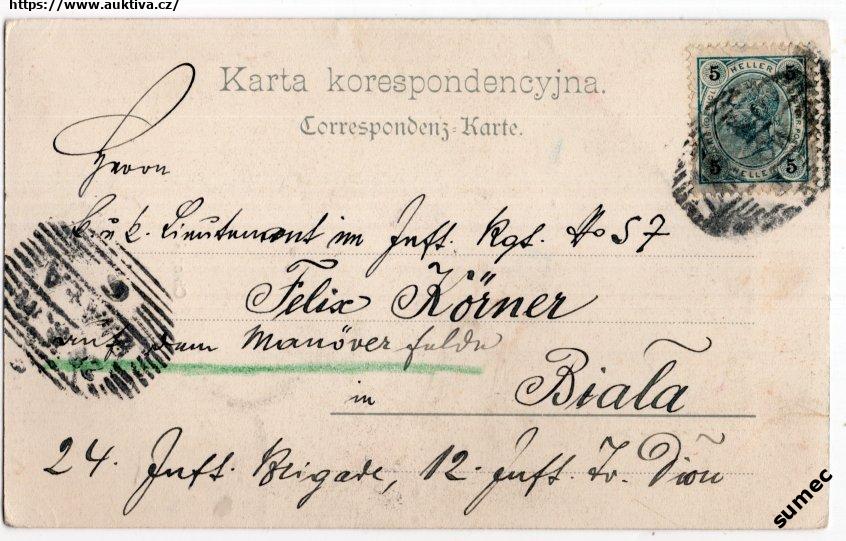 https://www.auktiva.cz/
Karta korespondencyjna.
Correspondenz-Karte.
5 HELLER 5
5 HELLER 5
Herrn
k. u. k. Lieutenant im Inft. Rgt. No 57
Felix Körner
auf dem Manöverfelde
in Biała
24. Inft. Brigade, 12. Inft. Tr. Dion
sumec